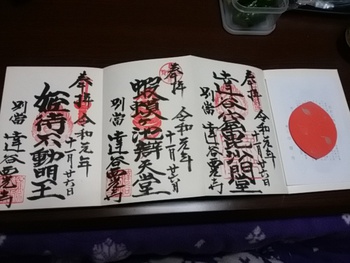 奉拝
令和元年
十一月廿六日
達谷窟毘沙門堂
別當 達谷西光寺
奉拝
令和元年
十一月廿六日
蝦蟆ケ池辯天堂
別當 達谷西光寺
奉拝
令和元年
十一月廿六日
姫待不動明王
別當 達谷西光寺